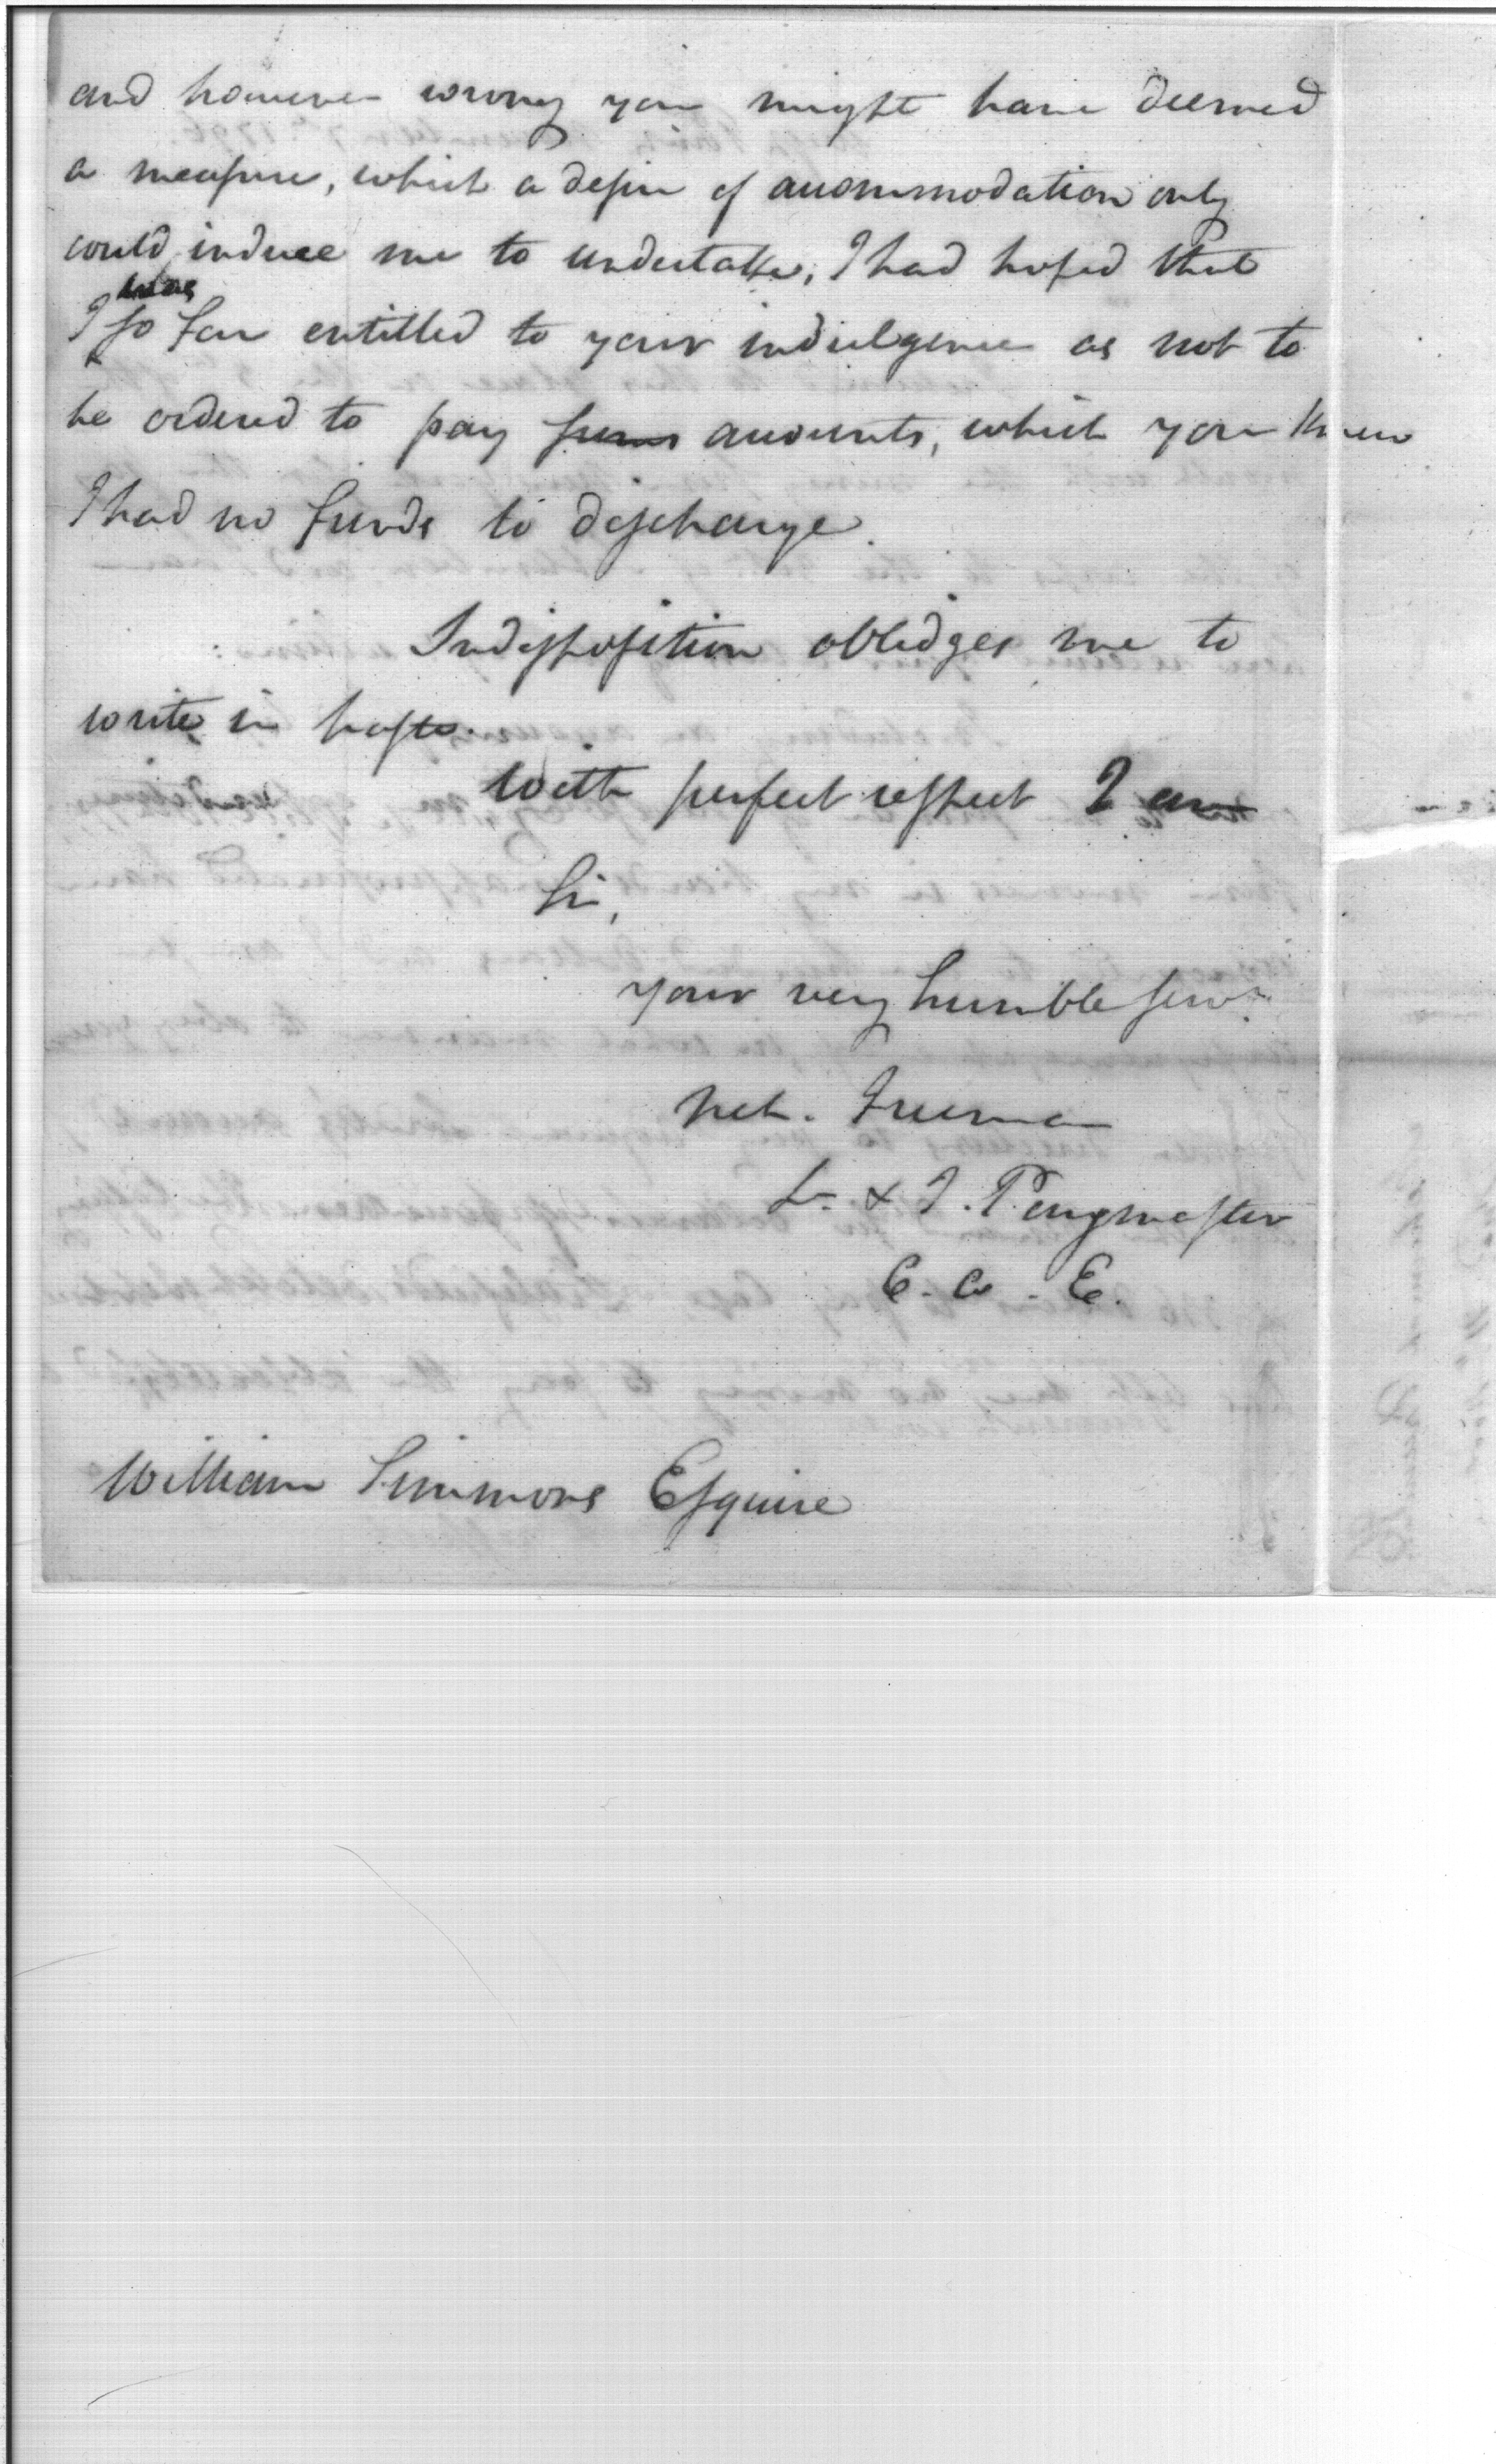 and however wrong you might have deemed
a measure, which a desire of accommodation only
could induce me to undertake, I had hoped that
was
I so far entitled to your indulgence as not to
be ordered to pay sums accounts, which you knew
I had no funds to discharge.
Indisposition obledges me to
write in haste.
With perfect respect I am
Sir,
your very humble servt
Neh. Freeman
Lt & T. Paymaster
C. A. E.
William Simmons Esquire